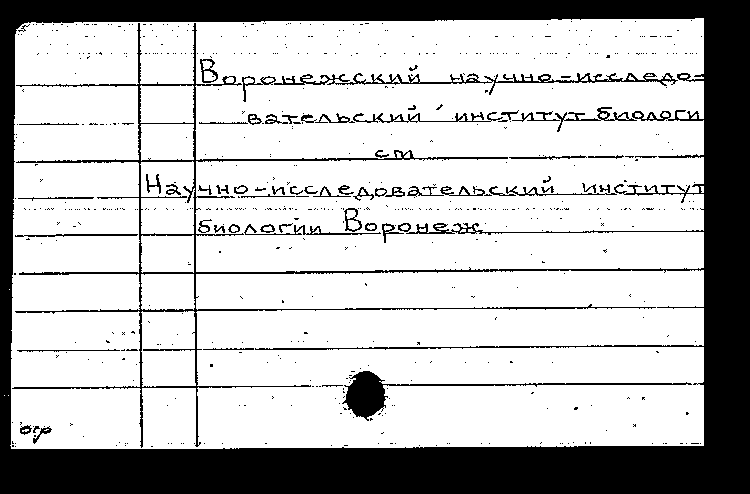 Воронежский научно-исследо-
вательский институт биологи
см
Научно-исследовательский институт
биологии Воронеж.